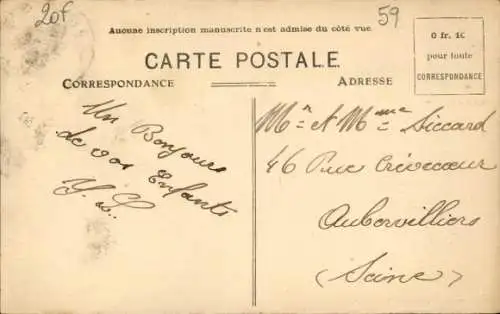 20f
59
Aucune inscription manuscrite n'est admise du côté vue.
CARTE POSTALE
CORRESPONDANCE
ADRESSE
0 fr. 10
pour toute
CORRESPONDANCE
Un Bonjour
de vos Enfants
Mr et Mme Siccard
46 Rue Crèvecœur
Aubervilliers
(Seine)